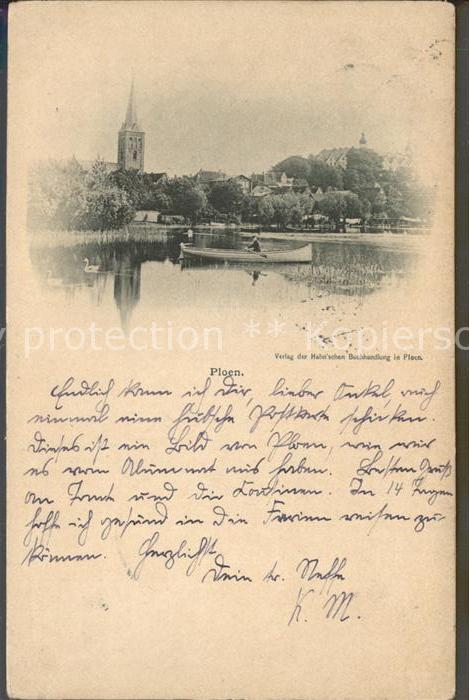 y protection ** Kopiersc
Verlag der Hahn'schen Buchhandlung in Ploen.
Ploen.
Endlich kann ich Dir, lieber Onkel, auch
einmal eine hübsche Postkarte schicken.
Dieses ist ein Bild von Ploen, wie wir
es vom Alumnat aus haben. Besten Gruß
an Tante und die Cousinen. In 14 Tagen
hoffe ich gesund in die Ferien reisen zu
können. Herzlichst
Dein tr. Neffe
K. M.